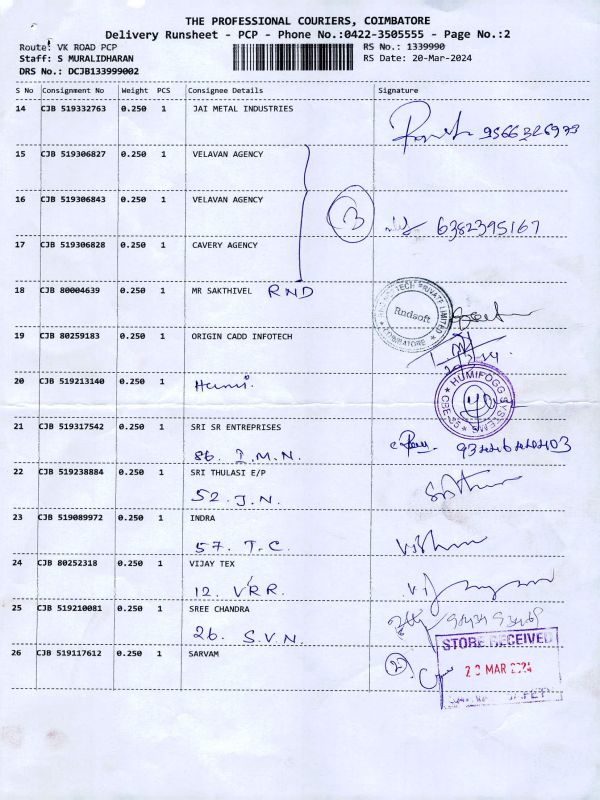 THE PROFESSIONAL COURIERS, COIMBATORE
Delivery Runsheet - PCP - Phone No.:0422-3505555 - Page No.:2
Route: VK ROAD PCP
RS No.: 1339990
Staff: S MURALIDHARAN
RS Date: 20-Mar-2024
DRS No.: DCJB133999002
S No Consignment No Weight PCS Consignee Details Signature
14 CJB 519332763 0.250 1 JAI METAL INDUSTRIES
15 CJB 519306827 0.250 1 VELAVAN AGENCY
16 CJB 519306843 0.250 1 VELAVAN AGENCY
3
6382395167
17 CJB 519306828 0.250 1 CAVERY AGENCY
18 CJB 80004639 0.250 1 MR SAKTHIVEL RND
Rndsoft
COIMBATORE
19 CJB 80259183 0.250 1 ORIGIN CADD INFOTECH
20 CJB 519213140 0.250 1 Humi.
HUMIFOGG SYSTEMS
21 CJB 519317542 0.250 1 SRI SR ENTREPRISES
86. I.M.N.
22 CJB 519238884 0.250 1 SRI THULASI E/P
52. J.N.
23 CJB 519089972 0.250 1 INDRA
57. T.C.
24 CJB 80252318 0.250 1 VIJAY TEX
12. VRR.
25 CJB 519210081 0.250 1 SREE CHANDRA
26. S.V.N.
26 CJB 519117612 0.250 1 SARVAM
2
STORE RECEIVED
20 MAR 2024